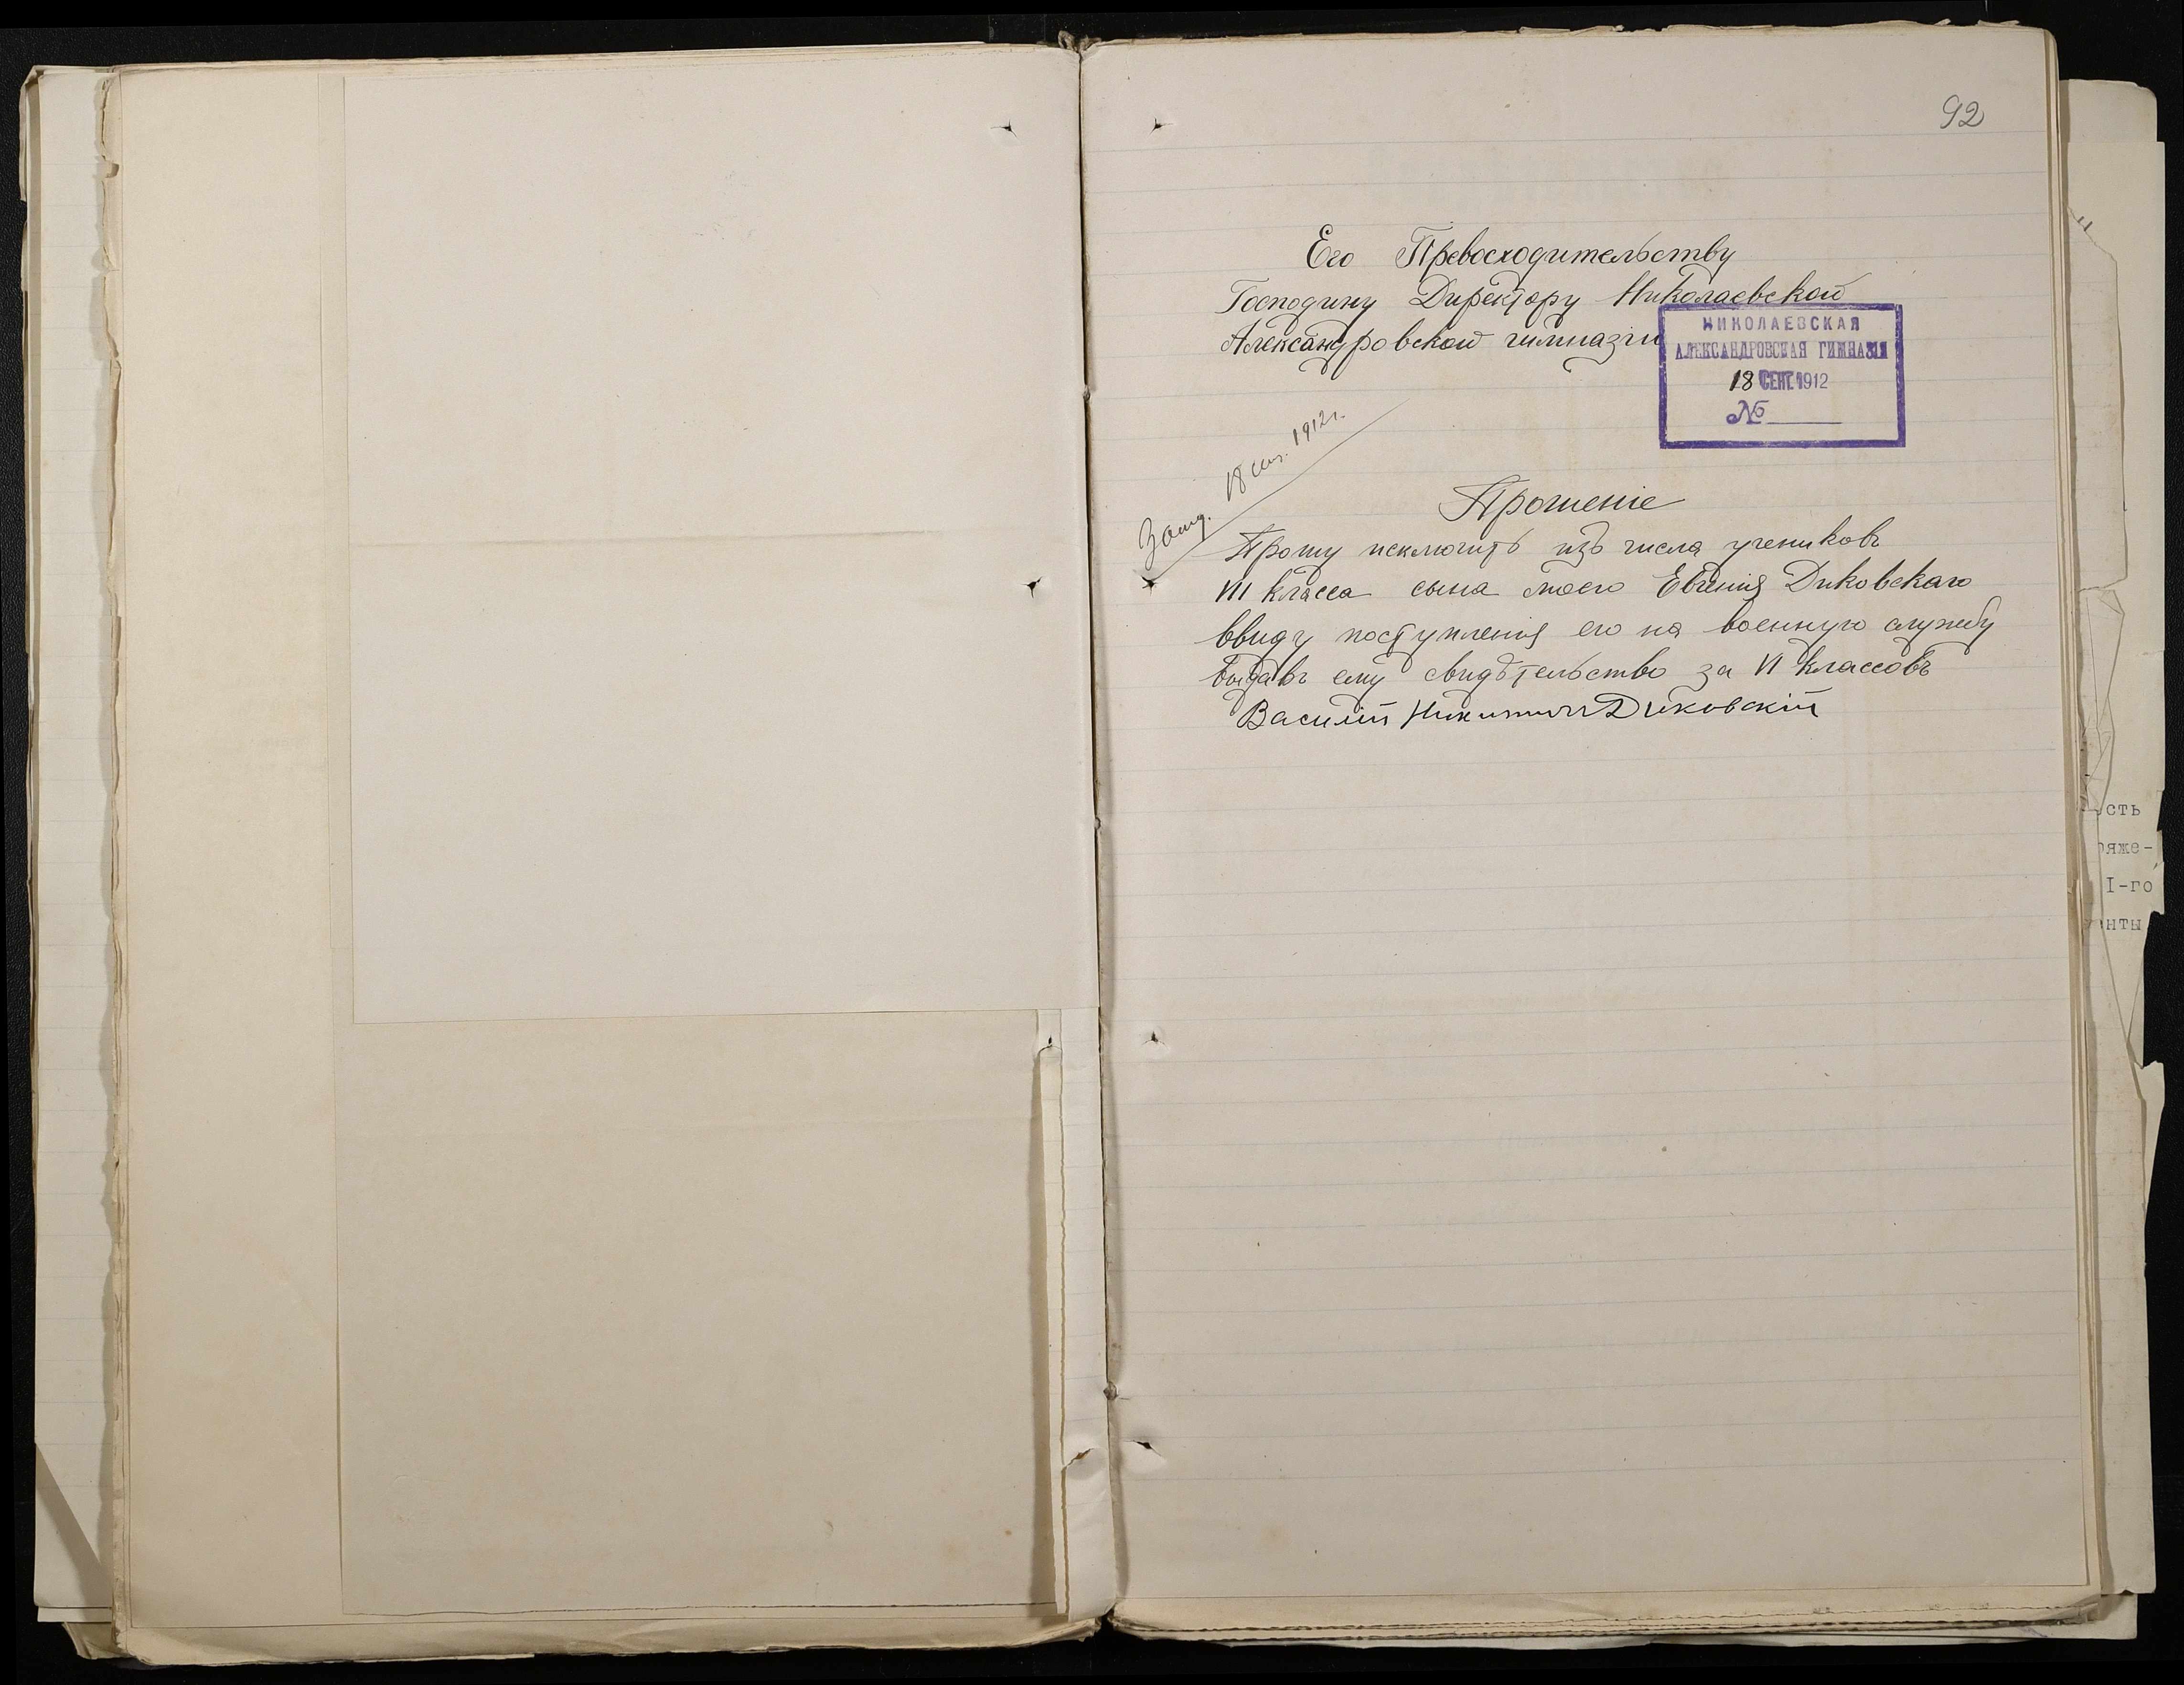 92
Его Превосходительству
Господину Директору Николаевской
Александровской гимназіи
НИКОЛАЕВСКАЯ
АЛЕКСАНДРОВСКАЯ ГИМНАЗІЯ
18 СЕНТ. 1912
№
18 сен. 1912 г.
Прошеніе
Прошу исключить изъ числа учениковъ
VII класса сына моего Евгенія Диковскаго
ввиду поступленія его на военную службу
выдавъ ему свидѣтельство за VI классовъ
Василій Никитич Диковскій
сть
яже-
I-го
нты